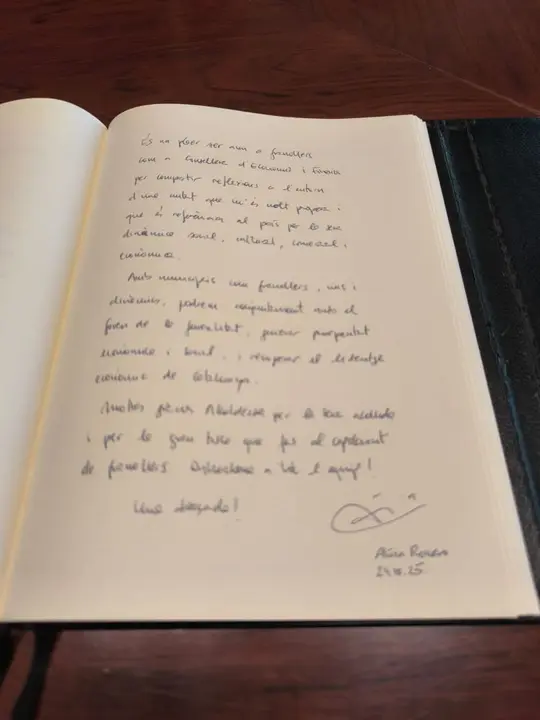 És un plaer ser avui a Granollers
com a Consellera d'Economia i Finances
per compartir reflexions a l'entorn
d'una ciutat que m'és molt propera i
que és referència al país per la seva
dinàmica social, cultural, comercial i
econòmica.
Amb municipis com Granollers, vius i
dinàmics, podrem conjuntament amb el
Govern de la Generalitat, generar prosperitat
econòmica i social, i recuperar el lideratge
econòmic de Catalunya.
Moltes gràcies Alcaldessa per la seva acollida
i per la gran tasca que fas al capdavant
de Granollers a tot l'equip!
Una abraçada!
Alícia Romero